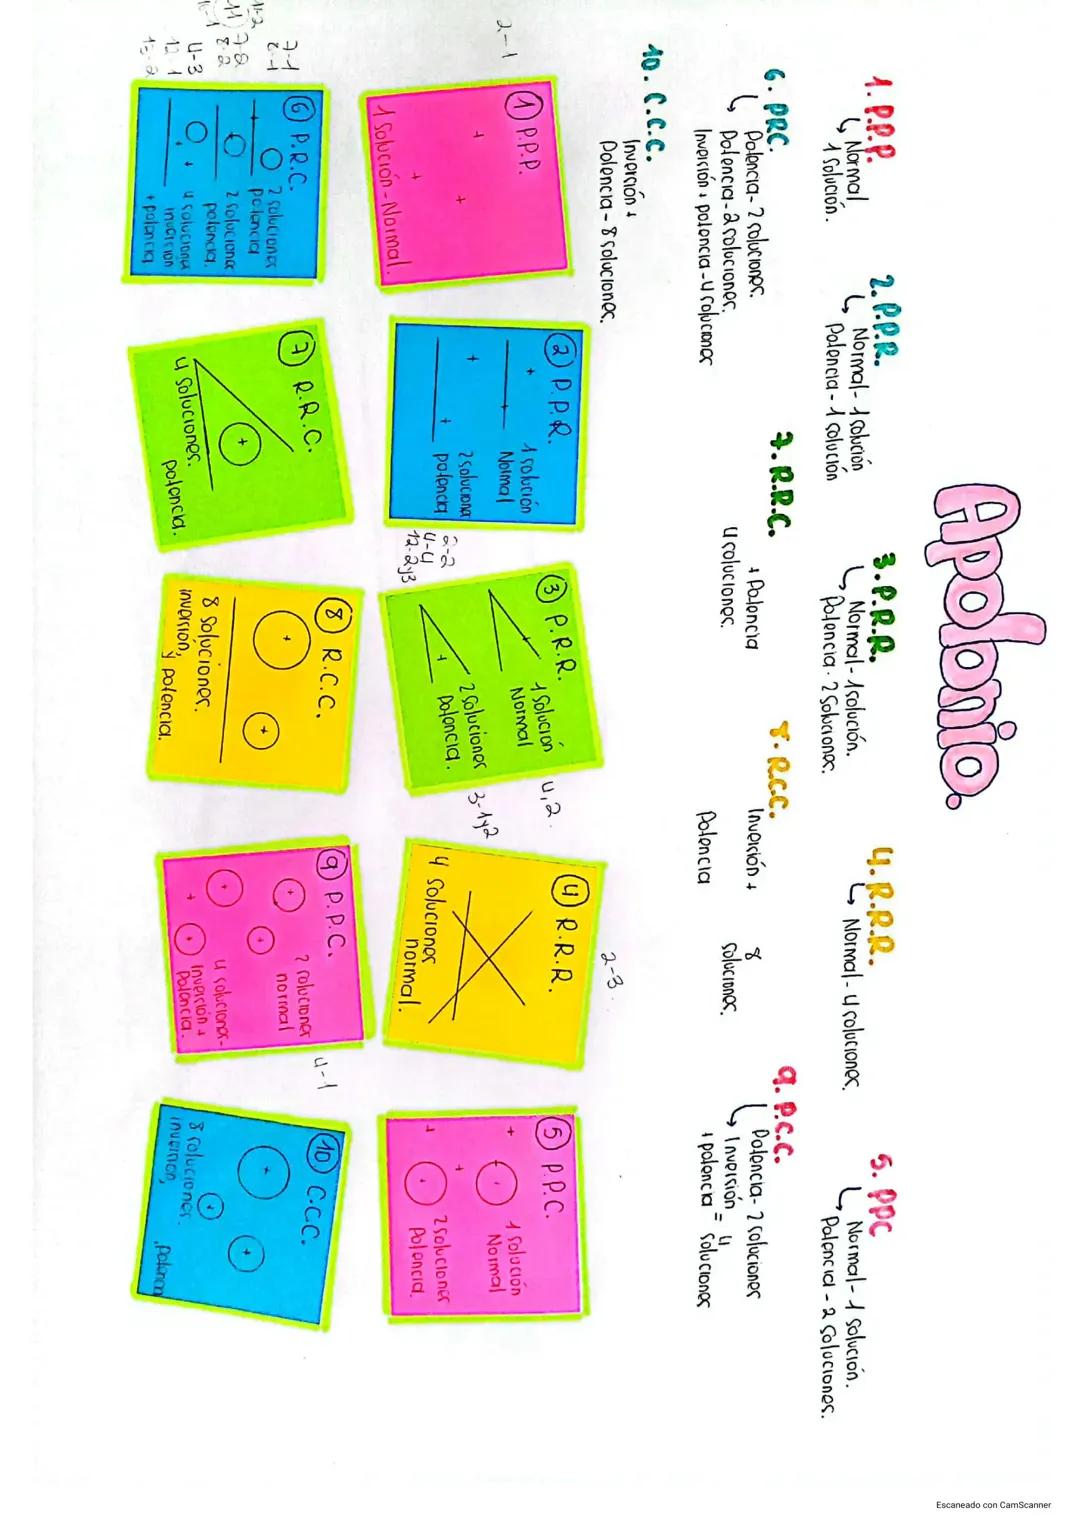 Apolonio.
1. P.P.P.
↳ Normal
1 solución.
2. P.P.R.
↳ Normal - 1 solución
Potencia - 1 solución
3. P.R.R.
↳ Normal - 1 solución.
Potencia - 2 soluciones.
4. R.R.R.
↳ Normal - 4 soluciones.
5. PPC
↳ Normal - 1 solución.
Potencia - 2 soluciones.
6. PRC.
↳ Potencia - 2 soluciones.
Potencia - 2 soluciones.
Inversión + potencia - 4 soluciones
7. R.R.C.
+ Potencia
4 soluciones.
8. R.C.C.
Inversión +
Potencia
8
soluciones.
9. P.C.C.
↳ Potencia - 2 soluciones
↳ Inversión
+ potencia = 4 soluciones
10. C.C.C.
Inversión +
Potencia - 8 soluciones.
2-1
① P.P.P.
1 solución - Normal.
② P.P.R.
1 solución
Normal
2 soluciones
potencia
2-2
4-4
12-2y3
③ P.R.R.
1 solución
Normal
2 soluciones
Potencia.
4,2.
3-1y2
④ R.R.R.
4 soluciones
normal.
2-3.
⑤ P.P.C.
1 solución
Normal
2 soluciones
Potencia.
7-1
8-1
7-2
8-2
4-3
12-1
⑥ P.R.C.
2 soluciones
potencia
2 soluciones
potencia.
4 soluciones
inversión
+ potencia
⑦ R.R.C.
4 soluciones.
potencia.
⑧ R.C.C.
8 soluciones.
inversión,
y potencia.
⑨ P.P.C.
2 soluciones
normal
4 soluciones-
Inversión +
Potencia.
4-1
⑩ C.C.C.
8 soluciones.
inversión,
Potencia
Escaneado con CamScanner